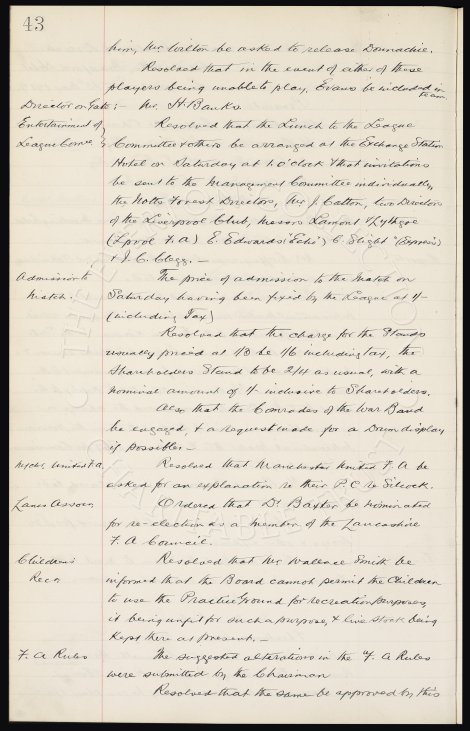 43
him, Mr Wilton be asked to release Donnachie.
Resolved that in the event of either of these
players being unable to play, Evans be included in
team
Director on Gate :- Mr. H. Banks.
Entertainment of
League Comee
Resolved that the Lunch to the League
Committee & others be arranged at the Exchange Station
Hotel on Saturday at 1 o'clock & that invitations
be sent to the Management Committee individually,
the Notts Forest Directors, Mr J. Catton, two Directors
of the Liverpool Club, Messrs Lamont & Lythgoe
(Lpool F.A) E. Edwards "Echo" C. Slight "(Express)
& J. C. Clegg. -
Admission to
Match.
The price of admission to the Match on
Saturday having been fixed by the League at 1/-
(including Tax)
Resolved that the charge for the Stands
usually priced at 1/3 be 1/6 including tax, the
Shareholders Stand to be 2/4 as usual, with a
nominal amount of 1/- inclusive to Shareholders.
Also that the Comrades of the War Band
be engaged, & a request made for a Drum display
if possible -
Resolved that Manchester United F.A be
asked for an explanation re their P.C re Silcock.
Lancs Assocn
Ordered that Dr Baxter be nominated
for re-election as a member of the Lancashire
F.A Council.
Children's
Recn
Resolved that Mr Wallace Smith be
informed that the Board cannot permit the Children
to use the Practice Ground for recreation purposes,
it being unfit for such a purpose, & live stock being
kept there at present. -
F.A Rules
The suggested alterations in the F.A Rules
were submitted by the Chairman
Resolved that the same be approved by this